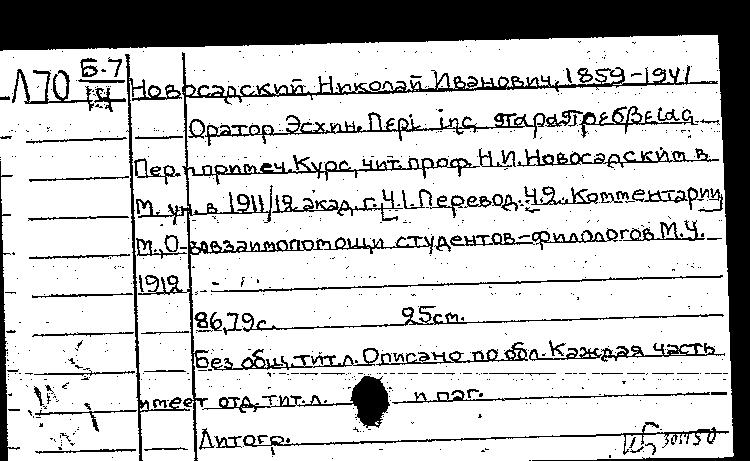 Л70 Б-7
Новосадский, Николай Иванович, 1859-1941
Оратор Эсхин. Περὶ τῆς παραπρεσβείας
Пер. и примеч. Курс, чит. проф. Н.И. Новосадским в
М. ун. в 1911/12 акад. г. Ч.1. Перевод. Ч.2. Комментарии
М., О-во взаимопомощи студентов-филологов М.У.
1912
86,79 с. 25 см.
Без общ. тит. л. Описано по обл. Каждая часть
имеет отд. тит. л. и паг.
Литогр.